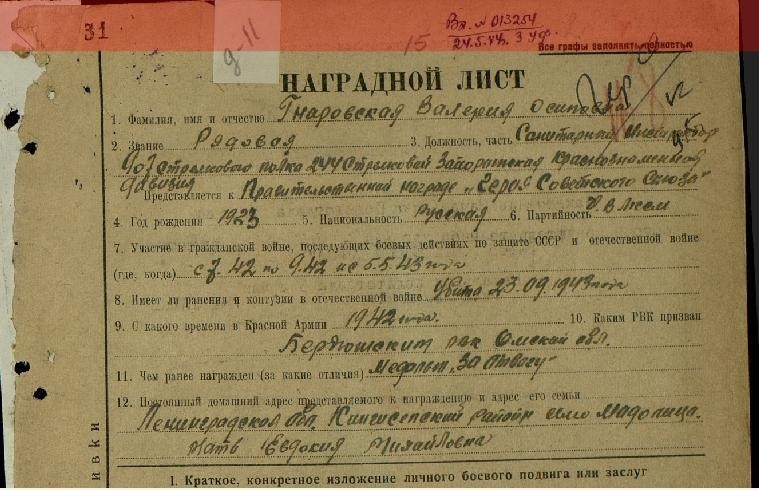 31
Вх. № 013254
24.5.44.
15
Все графы заполнять полностью
НАГРАДНОЙ ЛИСТ
1. Фамилия, имя и отчество Гнаровская Валерия Осиповна
2. Звание Рядовая 3. Должность, часть Санитарный Инструктор
907 Стрелкового полка 244 Стрелковой Запорожская Краснознаменная
дивизия
Представляется к Правительственной награде „Героя Советского Союза“
4. Год рождения 1923 5. Национальность Русская 6. Партийность
7. Участие в гражданской войне, последующих боевых действиях по защите СССР и отечественной войне
(где, когда) с 7.42 по 9.42 5.5.43 года
8. Имеет ли ранения и контузии в отечественной войне Убита 23.09.1943 года
9. С какого времени в Красной Армии 1942 года. 10. Каким РВК призван
Бердюшским рвк Омской обл.
11. Чем ранее награжден (за какие отличия) Медалью „За Отвагу“
12. Постоянный домашний адрес представляемого к награждению и адрес его семьи
Ленинградская обл. Кингисепский район
Мать Евдокия Михайловна
ивки
I. Краткое, конкретное изложение личного боевого подвига или заслуг